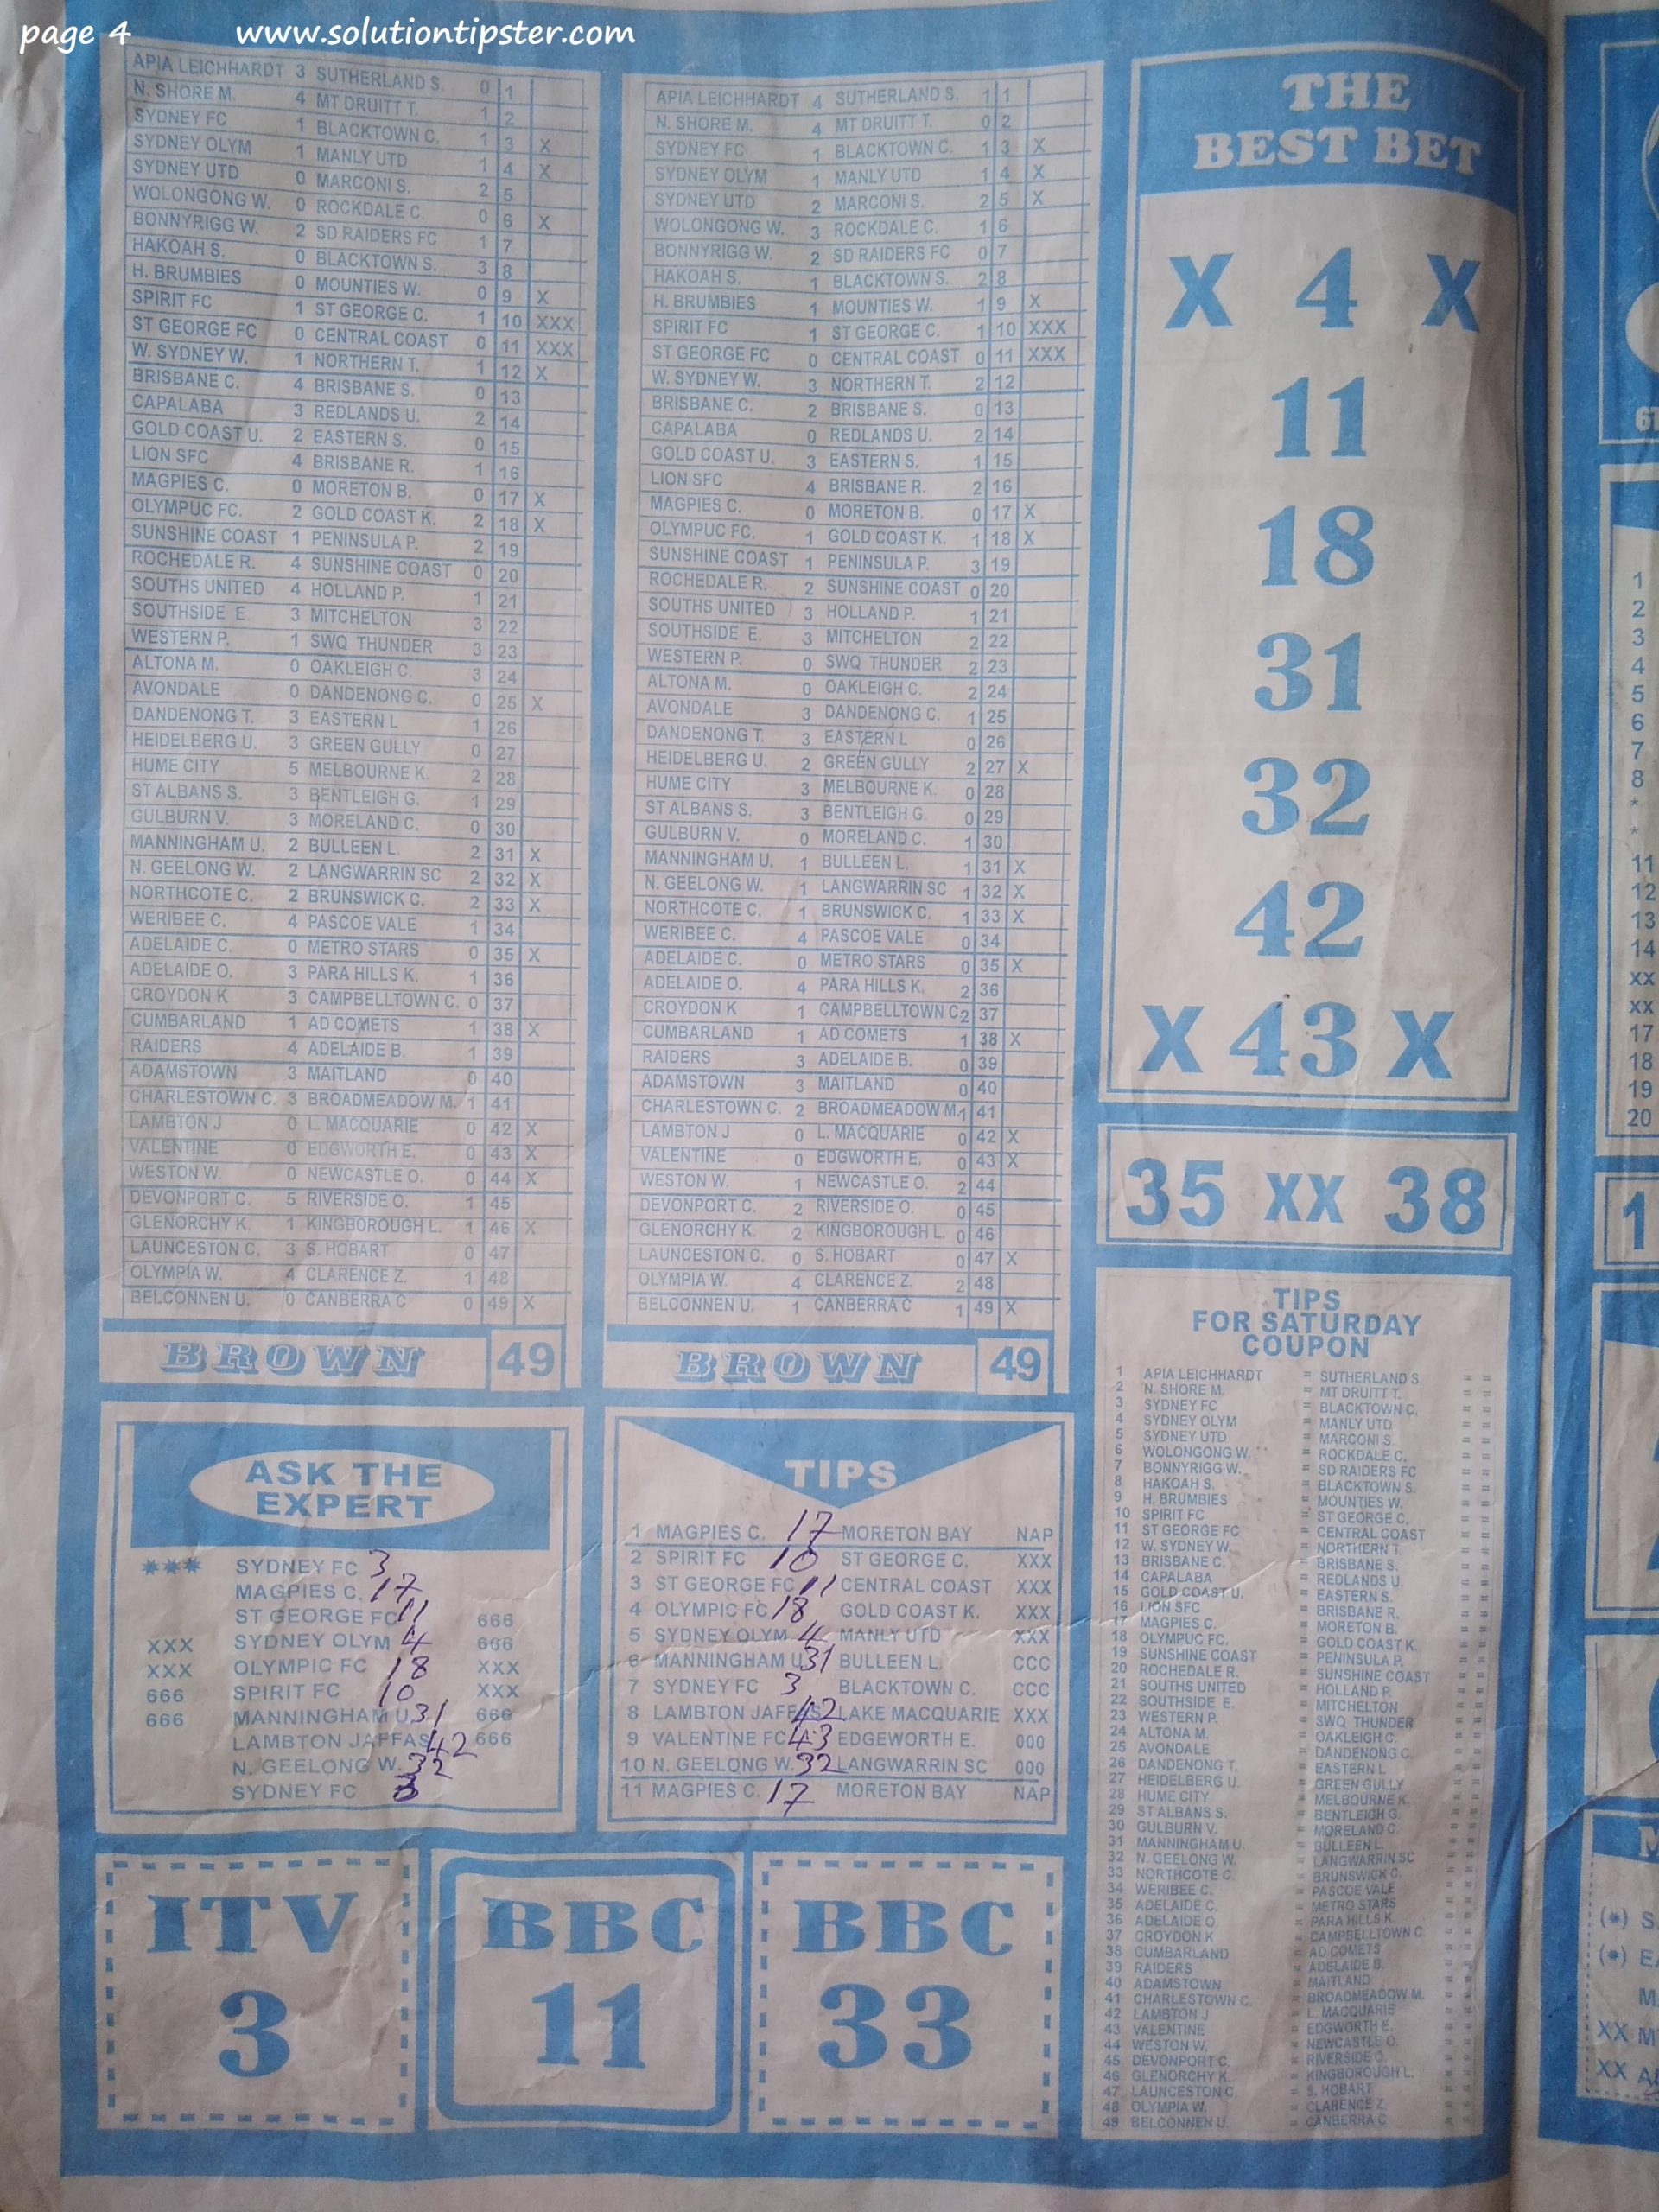 page 4 www.solutiontipster.com
APIA LEICHHARDT 3 SUTHERLAND S. 0 1
N. SHORE M. 4 MT DRUITT T. 1 2
SYDNEY FC 1 BLACKTOWN C. 1 3 X
SYDNEY OLYM 1 MANLY UTD 1 4 X
SYDNEY UTD 0 MARCONI S. 2 5
WOLONGONG W. 0 ROCKDALE C. 0 6 X
BONNYRIGG W. 2 SD RAIDERS FC 1 7
HAKOAH S. 0 BLACKTOWN S. 3 8
H. BRUMBIES 0 MOUNTIES W. 0 9 X
SPIRIT FC 1 ST GEORGE C. 1 10 XXX
ST GEORGE FC 0 CENTRAL COAST 0 11 XXX
W. SYDNEY W. 1 NORTHERN T. 1 12 X
BRISBANE C. 4 BRISBANE S. 0 13
CAPALABA 3 REDLANDS U. 2 14
GOLD COAST U. 2 EASTERN S. 0 15
LION SFC 4 BRISBANE R. 1 16
MAGPIES C. 0 MORETON B. 0 17 X
OLYMPUC FC. 2 GOLD COAST K. 2 18 X
SUNSHINE COAST 1 PENINSULA P. 2 19
ROCHEDALE R. 4 SUNSHINE COAST 0 20
SOUTHS UNITED 4 HOLLAND P. 1 21
SOUTHSIDE E. 3 MITCHELTON 3 22
WESTERN P. 1 SWQ THUNDER 3 23
ALTONA M. 0 OAKLEIGH C. 3 24
AVONDALE 0 DANDENONG C. 0 25 X
DANDENONG T. 3 EASTERN L 1 26
HEIDELBERG U. 3 GREEN GULLY 0 27
HUME CITY 5 MELBOURNE K. 2 28
ST ALBANS S. 3 BENTLEIGH G. 1 29
GULBURN V. 3 MORELAND C. 0 30
MANNINGHAM U. 2 BULLEEN L. 2 31 X
N. GEELONG W. 2 LANGWARRIN SC 2 32 X
NORTHCOTE C. 2 BRUNSWICK C. 2 33 X
WERIBEE C. 4 PASCOE VALE 1 34
ADELAIDE C. 0 METRO STARS 0 35 X
ADELAIDE O. 3 PARA HILLS K. 1 36
CROYDON K 3 CAMPBELLTOWN C. 0 37
CUMBARLAND 1 AD COMETS 1 38 X
RAIDERS 4 ADELAIDE B. 1 39
ADAMSTOWN 3 MAITLAND 0 40
CHARLESTOWN C. 3 BROADMEADOW M. 1 41
LAMBTON J 0 L. MACQUARIE 0 42 X
VALENTINE 0 EDGWORTH E. 0 43 X
WESTON W. 0 NEWCASTLE O. 0 44 X
DEVONPORT C. 5 RIVERSIDE O. 1 45
GLENORCHY K. 1 KINGBOROUGH L. 1 46 X
LAUNCESTON C. 3 S. HOBART 0 47
OLYMPIA W. 4 CLARENCE Z. 1 48
BELCONNEN U. 0 CANBERRA C 0 49 X
BROWN 49
APIA LEICHHARDT 4 SUTHERLAND S. 1 1
N. SHORE M. 4 MT DRUITT T. 0 2
SYDNEY FC 1 BLACKTOWN C. 1 3 X
SYDNEY OLYM 1 MANLY UTD 1 4 X
SYDNEY UTD 2 MARCONI S. 2 5 X
WOLONGONG W. 3 ROCKDALE C. 1 6
BONNYRIGG W. 2 SD RAIDERS FC 0 7
HAKOAH S. 1 BLACKTOWN S. 2 8
H. BRUMBIES 1 MOUNTIES W. 1 9 X
SPIRIT FC 1 ST GEORGE C. 1 10 XXX
ST GEORGE FC 0 CENTRAL COAST 0 11 XXX
W. SYDNEY W. 3 NORTHERN T. 2 12
BRISBANE C. 2 BRISBANE S. 0 13
CAPALABA 0 REDLANDS U. 2 14
GOLD COAST U. 3 EASTERN S. 1 15
LION SFC 4 BRISBANE R. 2 16
MAGPIES C. 0 MORETON B. 0 17 X
OLYMPUC FC. 1 GOLD COAST K. 1 18 X
SUNSHINE COAST 1 PENINSULA P. 3 19
ROCHEDALE R. 2 SUNSHINE COAST 0 20
SOUTHS UNITED 3 HOLLAND P. 1 21
SOUTHSIDE E. 3 MITCHELTON 2 22
WESTERN P. 0 SWQ THUNDER 2 23
ALTONA M. 0 OAKLEIGH C. 2 24
AVONDALE 3 DANDENONG C. 1 25
DANDENONG T. 3 EASTERN L 0 26
HEIDELBERG U. 2 GREEN GULLY 2 27 X
HUME CITY 3 MELBOURNE K. 0 28
ST ALBANS S. 3 BENTLEIGH G. 0 29
GULBURN V. 0 MORELAND C. 1 30
MANNINGHAM U. 1 BULLEEN L. 1 31 X
N. GEELONG W. 1 LANGWARRIN SC 1 32 X
NORTHCOTE C. 1 BRUNSWICK C. 1 33 X
WERIBEE C. 4 PASCOE VALE 0 34
ADELAIDE C. 0 METRO STARS 0 35 X
ADELAIDE O. 4 PARA HILLS K. 2 36
CROYDON K 1 CAMPBELLTOWN C 2 37
CUMBARLAND 1 AD COMETS 1 38 X
RAIDERS 3 ADELAIDE B. 0 39
ADAMSTOWN 3 MAITLAND 0 40
CHARLESTOWN C. 2 BROADMEADOW M. 1 41
LAMBTON J 0 L. MACQUARIE 0 42 X
VALENTINE 0 EDGWORTH E. 0 43 X
WESTON W. 1 NEWCASTLE O. 2 44
DEVONPORT C. 2 RIVERSIDE O. 0 45
GLENORCHY K. 2 KINGBOROUGH L. 0 46
LAUNCESTON C. 0 S. HOBART 0 47 X
OLYMPIA W. 4 CLARENCE Z. 2 48
BELCONNEN U. 1 CANBERRA C 1 49 X
BROWN 49
THE
BEST BET
X 4 X
11
18
31
32
42
X 43 X
35 XX 38
ASK THE
EXPERT
*** SYDNEY FC 3
MAGPIES C. 17
ST GEORGE FC 11 666
XXX SYDNEY OLYM 4 666
XXX OLYMPIC FC 18 XXX
666 SPIRIT FC 10 XXX
666 MANNINGHAM U. 31 666
LAMBTON JAFFAS 42 666
N. GEELONG W. 32
SYDNEY FC 3
TIPS
1 MAGPIES C. 17 MORETON BAY NAP
2 SPIRIT FC 10 ST GEORGE C. XXX
3 ST GEORGE FC 11 CENTRAL COAST XXX
4 OLYMPIC FC 18 GOLD COAST K. XXX
5 SYDNEY OLYM 4 MANLY UTD XXX
6 MANNINGHAM U. 31 BULLEEN L. CCC
7 SYDNEY FC 3 BLACKTOWN C. CCC
8 LAMBTON JAFFAS 42 LAKE MACQUARIE XXX
9 VALENTINE FC 43 EDGEWORTH E. 000
10 N. GEELONG W. 32 LANGWARRIN SC 000
11 MAGPIES C. 17 MORETON BAY NAP
ITV
3
BBC
11
BBC
33
TIPS
FOR SATURDAY
COUPON
1 APIA LEICHHARDT = SUTHERLAND S. = =
2 N. SHORE M. = MT DRUITT T. = =
3 SYDNEY FC = BLACKTOWN C. = =
4 SYDNEY OLYM = MANLY UTD = =
5 SYDNEY UTD = MARCONI S. = =
6 WOLONGONG W. = ROCKDALE C. = =
7 BONNYRIGG W. = SD RAIDERS FC = =
8 HAKOAH S. = BLACKTOWN S. = =
9 H. BRUMBIES = MOUNTIES W. = =
10 SPIRIT FC = ST GEORGE C. = =
11 ST GEORGE FC = CENTRAL COAST = =
12 W. SYDNEY W. = NORTHERN T. = =
13 BRISBANE C. = BRISBANE S. = =
14 CAPALABA = REDLANDS U. = =
15 GOLD COAST U. = EASTERN S. = =
16 LION SFC = BRISBANE R. = =
17 MAGPIES C. = MORETON B. = =
18 OLYMPUC FC. = GOLD COAST K. = =
19 SUNSHINE COAST = PENINSULA P. = =
20 ROCHEDALE R. = SUNSHINE COAST = =
21 SOUTHS UNITED = HOLLAND P. = =
22 SOUTHSIDE E. = MITCHELTON = =
23 WESTERN P. = SWQ THUNDER = =
24 ALTONA M. = OAKLEIGH C. = =
25 AVONDALE = DANDENONG C. = =
26 DANDENONG T. = EASTERN L = =
27 HEIDELBERG U. = GREEN GULLY = =
28 HUME CITY = MELBOURNE K. = =
29 ST ALBANS S. = BENTLEIGH G. = =
30 GULBURN V. = MORELAND C. = =
31 MANNINGHAM U. = BULLEEN L. = =
32 N. GEELONG W. = LANGWARRIN SC = =
33 NORTHCOTE C. = BRUNSWICK C. = =
34 WERIBEE C. = PASCOE VALE = =
35 ADELAIDE C. = METRO STARS = =
36 ADELAIDE O. = PARA HILLS K. = =
37 CROYDON K = CAMPBELLTOWN C. = =
38 CUMBARLAND = AD COMETS = =
39 RAIDERS = ADELAIDE B. = =
40 ADAMSTOWN = MAITLAND = =
41 CHARLESTOWN C. = BROADMEADOW M. = =
42 LAMBTON J = L. MACQUARIE = =
43 VALENTINE = EDGWORTH E. = =
44 WESTON W. = NEWCASTLE O. = =
45 DEVONPORT C. = RIVERSIDE O. = =
46 GLENORCHY K. = KINGBOROUGH L. = =
47 LAUNCESTON C. = S. HOBART = =
48 OLYMPIA W. = CLARENCE Z. = =
49 BELCONNEN U. = CANBERRA C = =
1
2
3
4
5
6
7
8
*
*
11
12
13
14
XX
XX
17
18
19
20
1
(*) S
(*) E
M
XX M
XX A